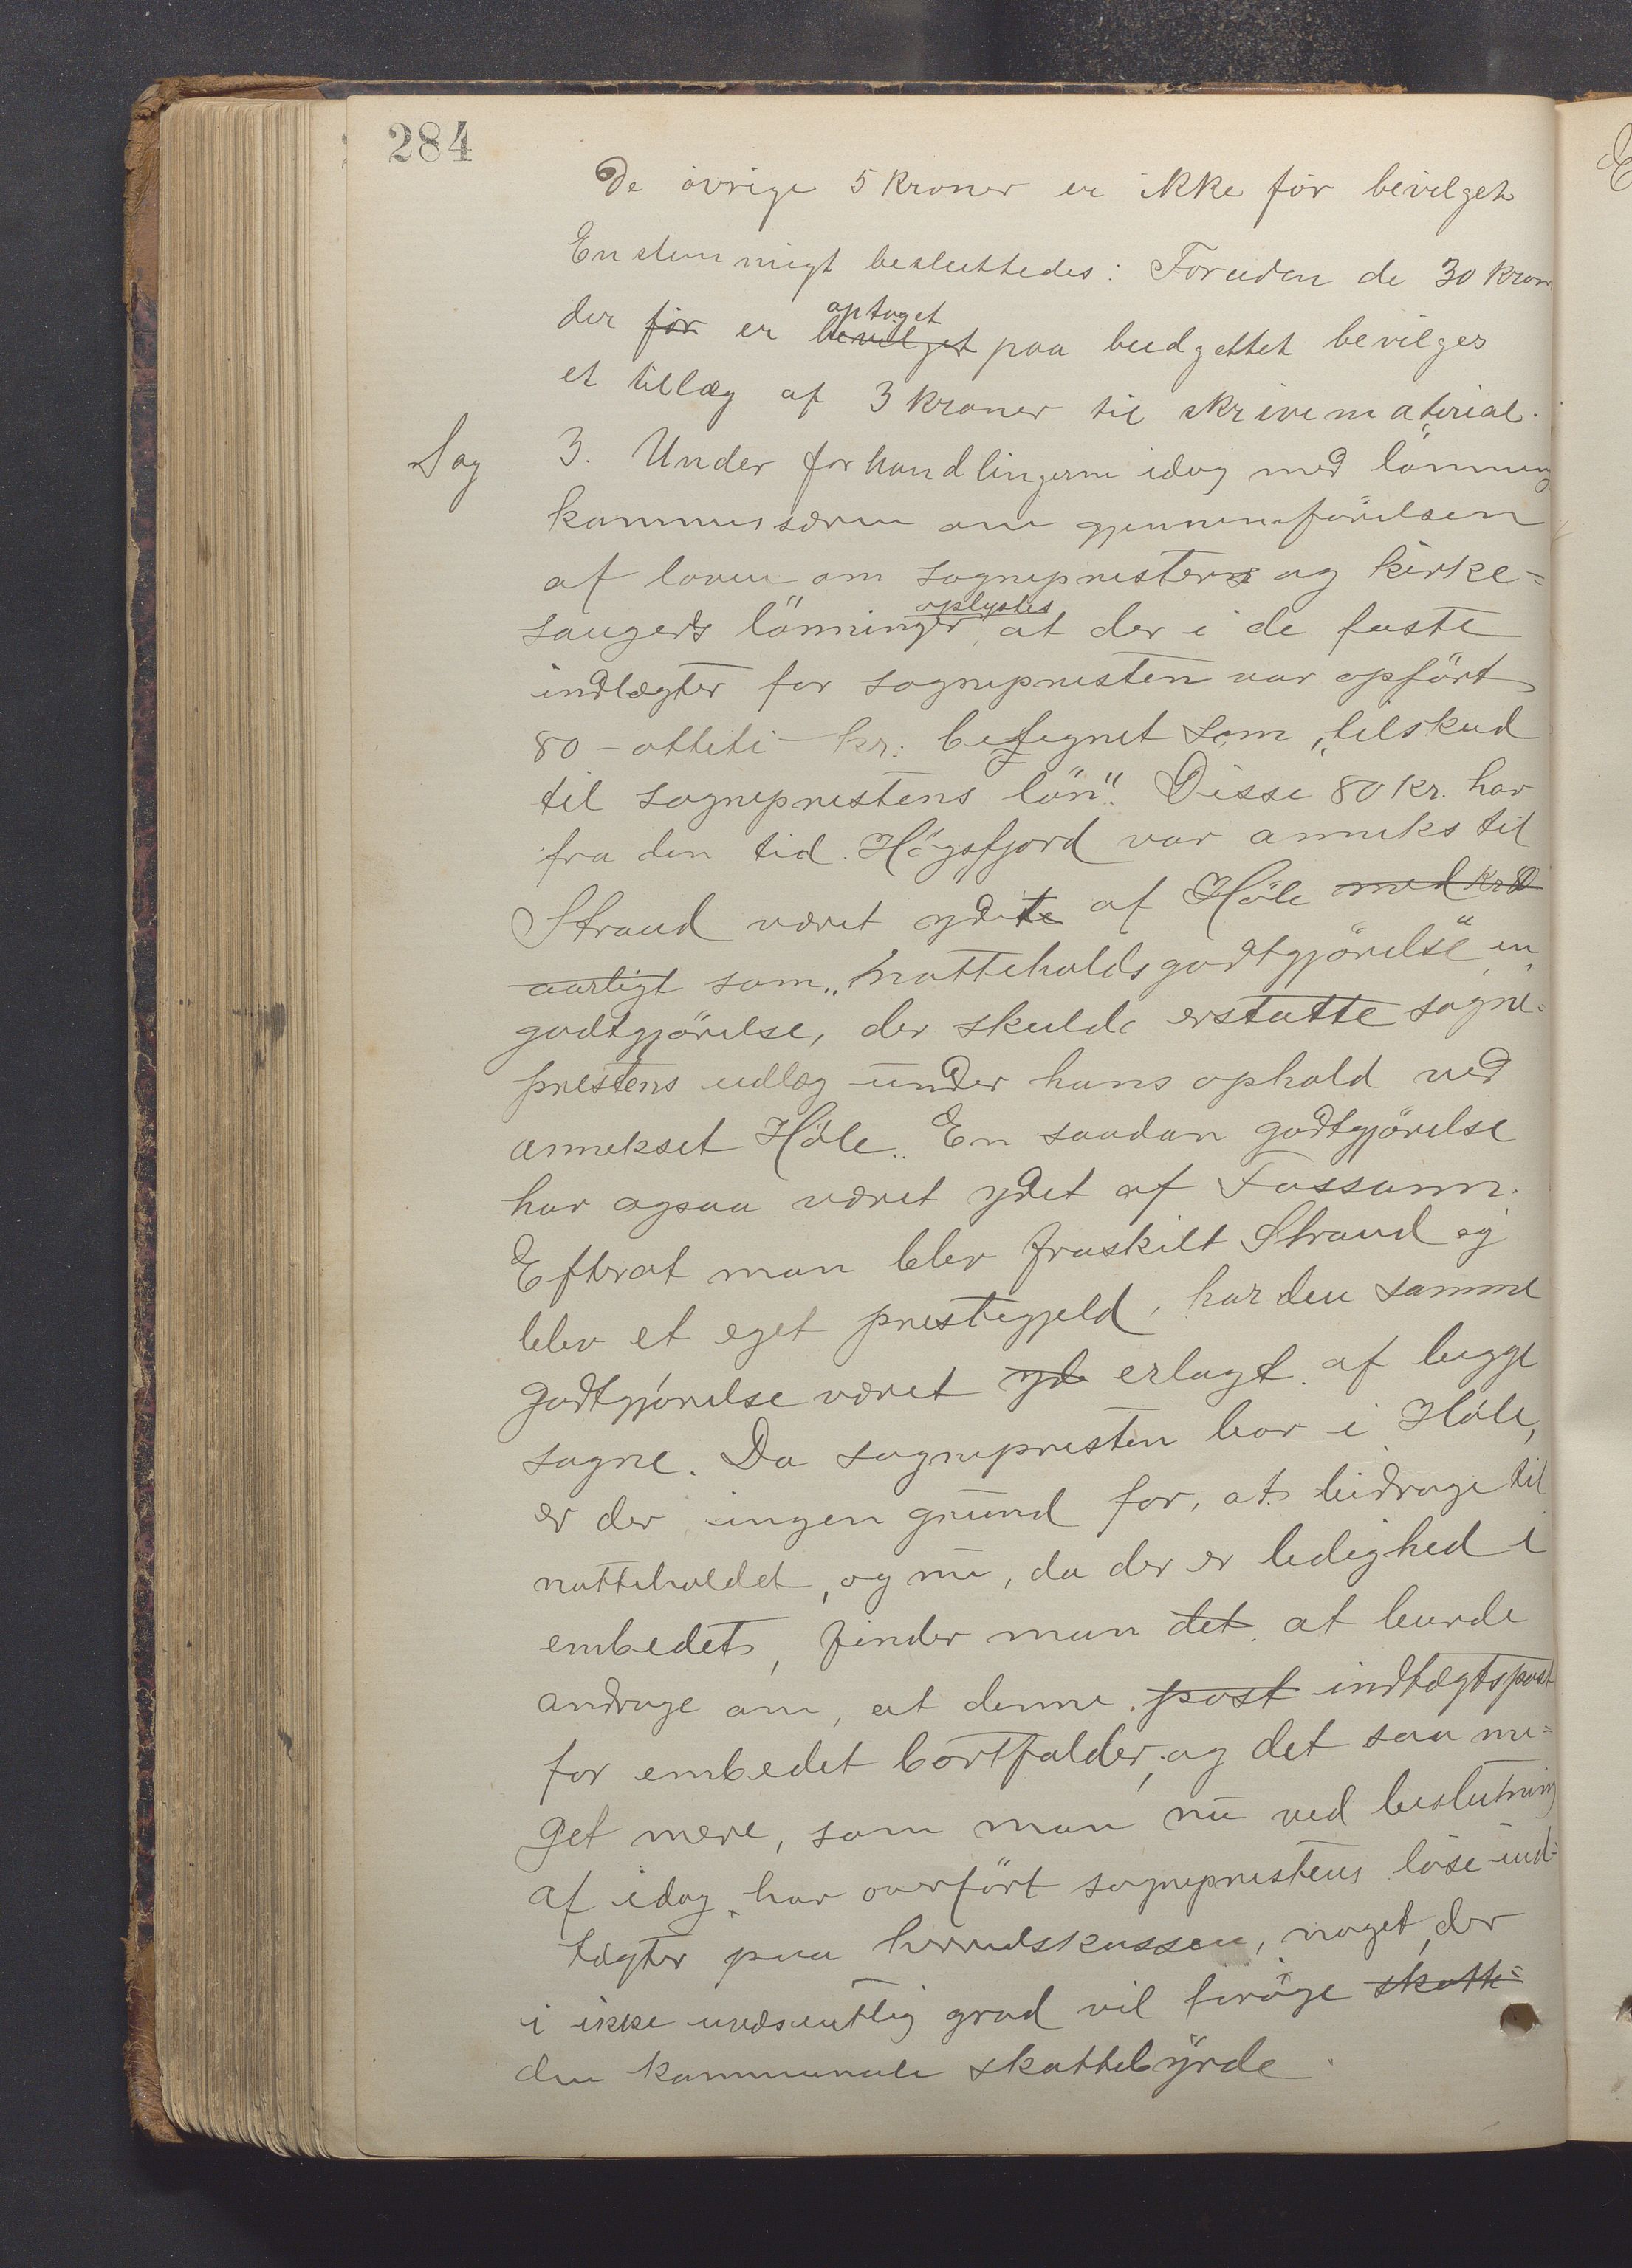 284
De øvrige 5 kroner er ikke før bevilget
Enstemmigt besluttedes: Foruden de 30 kroner
optaget
der før er bevilget paa budgettet bevilges
et tillæg af 3 kroner til skrivematerial.
Sag 3. Under forhandlingerne idag med lönnings
kommissæren om gjennemførelsen
af loven om sogneprestens og kirke=
oplystes
sangers lönninger, at der i de faste
indtægter for sognepresten var opfört
80 - otteti - kr. betegnet som „tilskud
til sogneprestens lön". Disse 80 kr. har
fra den tid Høgsfjord var anneks til
Strand været ydite af Höle med kr 80
aarligt som „natteholdsgodtgjörelse" en
godtgjörelse, der skulde erstatte sogne=
prestens udlæg under hans ophold ved
annekset Høle. En saadan godtgjörelse
har ogsaa været ydet af Fossann.
Efterat man blev fraskilt Strand og
blev et eget prestegjeld, har den samme
godtgjörelse været yde erlagt af begge
sogne. Da sognepresten bor i Høle,
er der ingen grund for, at bidrage til
natteholdet, og nu, da der er ledighed i
embedet, finder man det at burde
andrage om, at denne post indtægtspost
for embedet bortfalder, og det saa me=
get mere, som man nu ved beslutning
af idag har overfört sogneprestens löse ind=
tægter paa herredskassen, noget, der
i ikke uvæsentlig grad vil forøge skatte=
den kommunale skattebyrde.